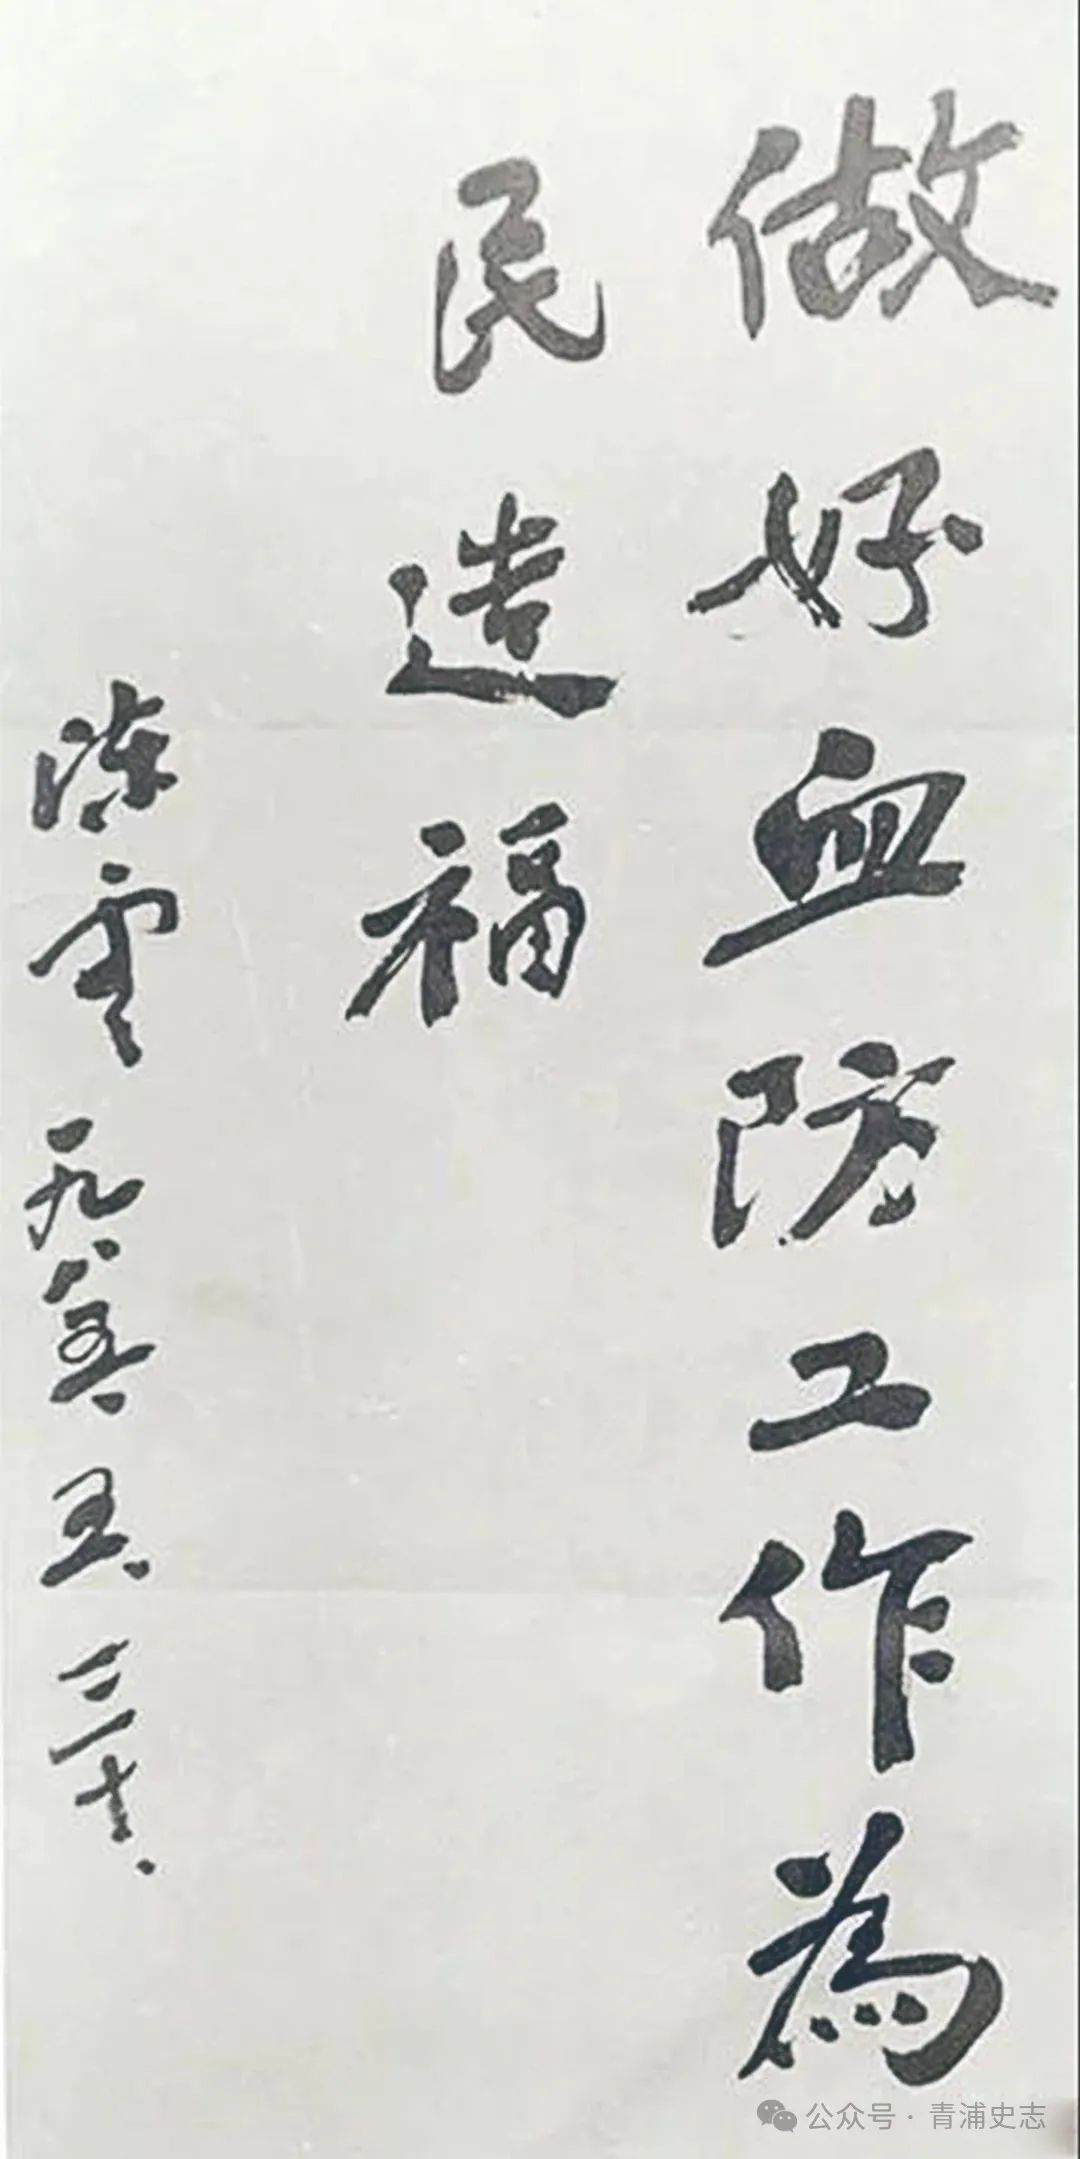 做好血防工作為
民造福
陈雲 一九八五 五 二十
公众号 · 青浦史志